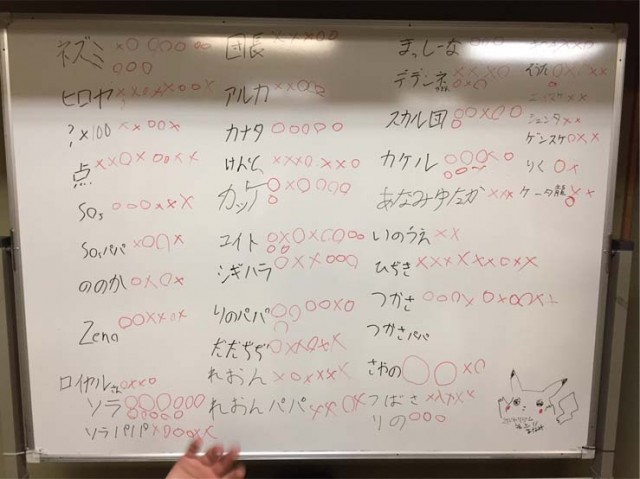 ネズミ ×○○○○○
○○○
ヒロヤ ××○×○○×
?×100 ××○○×
点 ××○×○○××
SOs ○○○××
SOsパパ ×○○×
ののか ○×○×
Zeno ○○×××
ロイヤルさん ○××○
ソラ ○○○○○○
○○○○○
ソラパパ ×○○××
団長 ×××○○
アルカ ××○○
カナタ ○○○○○
けんと ×××○××○
カット ○×○○○○
○
ユイト ○×○×○○○○
○○
シギハラ ○××○○○
りのパパ ○○○○×○
○
だだぢぢ ○××○××
れおん ×○××××
れおんパパ ××○×
まっしーな
デデンネ ××××
スカル団 ○○×○○
○
カケル ○○○×○
○○
あなみゆたか ×××
いのうえ ××
ひびき ××××××○××
つかさ ○○○× ○×○○××
つかさパパ
さやの ○○×○
つばさ ×××××
りの ○○○
ケンスケ ○××
りく ○×
ケータ龍 ××
○